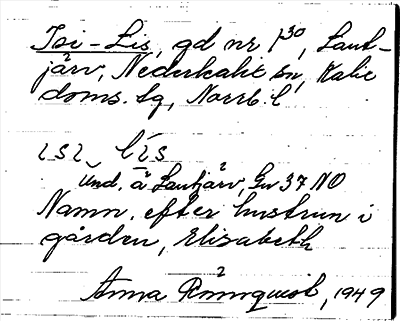 Isi-Lis, gd nr 1³⁰, Laut-
järv, Nederkalix sn, Kalix
doms. lg, Norrb. l
ɩsɩ, līs
Und. å Lautjärv, Gv 37 NO
Namn. efter hustrun i
gården, Elisabeth
Anna Rönnquist, 1949